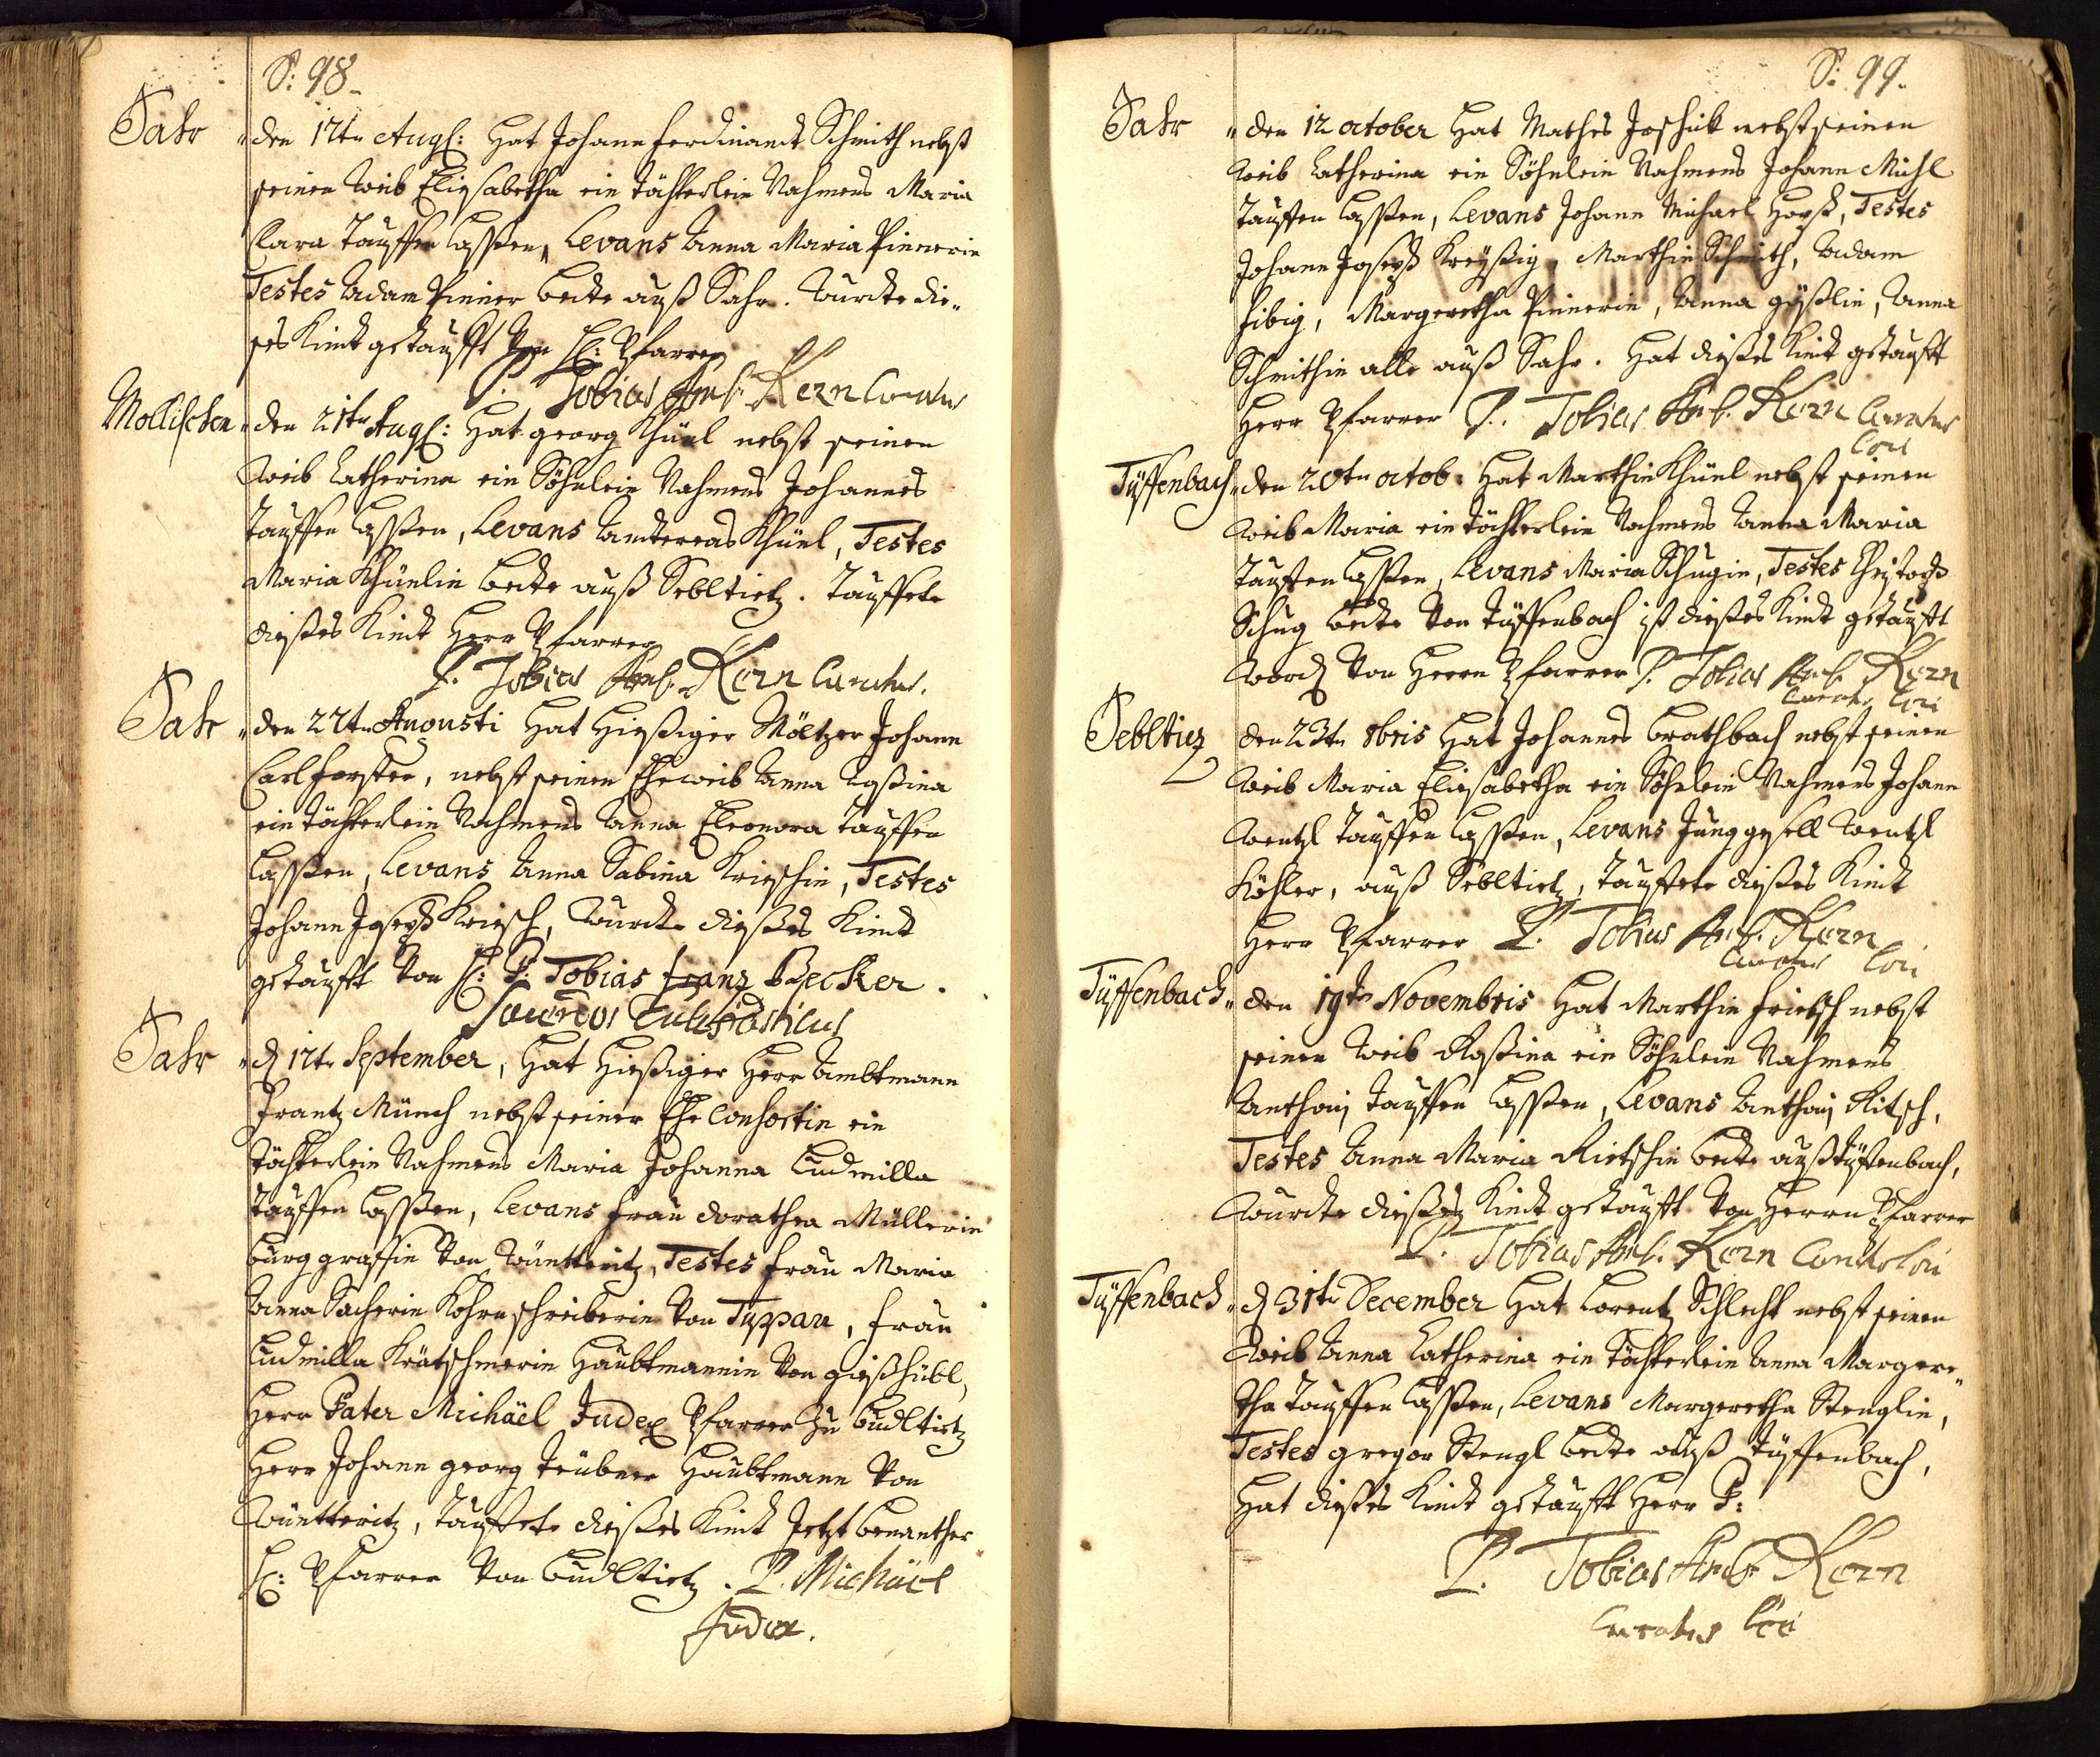 S: 98.
Sahr
den 12tn Augß: Hat Johann ferdinandt Schmith nebst
seinen Weib Eliesabetha ein Töchterlein Nahmens Maria
Clara Tauffen lassen, Levans Anna Maria Pinnerin
Testes Adam Pinner beede auß Sahr. Wurdte die-
ses Kindt getaufft von H: Pfarrer
P. Tobias Amb. Kern Curatus
Mollischen
den 21tn Augß: Hat georg Khünl nebst seinen
Weib Catherina ein Söhnlein Nahmens Johannes
Tauffen lassen, Levans Andtereas Khünl, Testes
Maria Khünlin beede auß Sebltietz. Tauffete
dießes Kindt Herr Pfarrer
P. Tobias Amb. Kern Curatus.
Sahr
den 22tn Augusti Hat Hießiger Mältzer Johann
Carl forster, nebst seinen Eheweib Anna Roßina
ein Töchterlein Nahmens Anna Eleonora Tauffen
lassen, Levans Anna Sabina Krieschin, Testes
Johann Joseph Kriesch, Wurdte dießes Kindt
getaufft von H: P: Tobias franz Becker.
Sacerdos
Sahr
d 12tn September, Hat Hießiger Herr Ambtmann
Frantz Münch nebst seiner Ehe Consortin ein
Töchterlein Nahmens Maria Johanna Ludmilla
Tauffen lassen, Levans frau dorathea Müllerin
burggraffin von Wüntteritz, Testes frau Maria
Anna Sacherin Kohrnschreiberin von Typpau, frau
Ludmilla Krätschmerin Haubtmannin von gießhübl,
Herr Pater Michäel Judex Pfarrer zu budltietz
Herr Johann georg Teubner Haubtmann von
Wüntteritz, Tauffete dießes Kindt Jetzt benanther
H: Pfarrer von budltietz. P. Michäel
Judex.
S: 99.
Sahr
den 12 october Hat Mathes Joschick nebst seinen
Weib Catherina ein Söhnlein Nahmens Johann Michl
Tauffen lassen, Levans Johann Michael Testes
Johann Joseph Kreyßig, Marthin Schmith, Adam
fibig, Margeretha Pinnerin, Anna gößlin, Anna
Schmithin alle auß Sahr. Hat dießes Kindt getaufft
Herr Pfarrer P. Tobias Amb. Kern Curatus
loci
Tüffenbach
den 20tn octob: Hat Marthin Khünl nebst seinen
Weib Maria ein Töchterlein Nahmens Anna Maria
Tauffen lassen, Levans Maria Schugin, Testes Christoph
Schug beede von Tüffenbach ist dießes Kindt getaufft
word von Herrn Pfarrer P. Tobias Amb. Kern
Curatus loci
Sebltiez
den 23tn 8bris Hat Johannes brathbach nebst seinen
Weib Maria Eliesabetha ein Söhnlein Nahmens Johann
Wentzl Tauffen lassen, Levans Junggesell Wentzl
Köhler, auß Sebltietz, Tauffete dießes Kindt
Herr Pfarrer P. Tobias Amb. Kern
Curatus loci
Tüffenbach
den 19tn Novembris Hat Marthin frietsch nebst
seinen Weib Roßina ein Söhnlein Nahmens
Anthonj Tauffen lassen, Levans Anthonj Ritsch,
Testes Anna Maria Rietschin beede auß Tüffenbach,
Wurdte dießes Kindt getaufft von Herrn Pfarrer
P. Tobias Amb. Kern Curatus loci
Tüffenbach
d 31tn December Hat Lorentz Schlecht nebst seinen
Weib Anna Catherina ein Töchterlein Anna Margere-
tha Tauffen lassen, Levans Margeretha Stenglin,
Testes gregor Stengl beede auß Tüffenbach,
Hat dießes Kindt getaufft Herr P:
P. Tobias Amb. Kern
Curatus loci